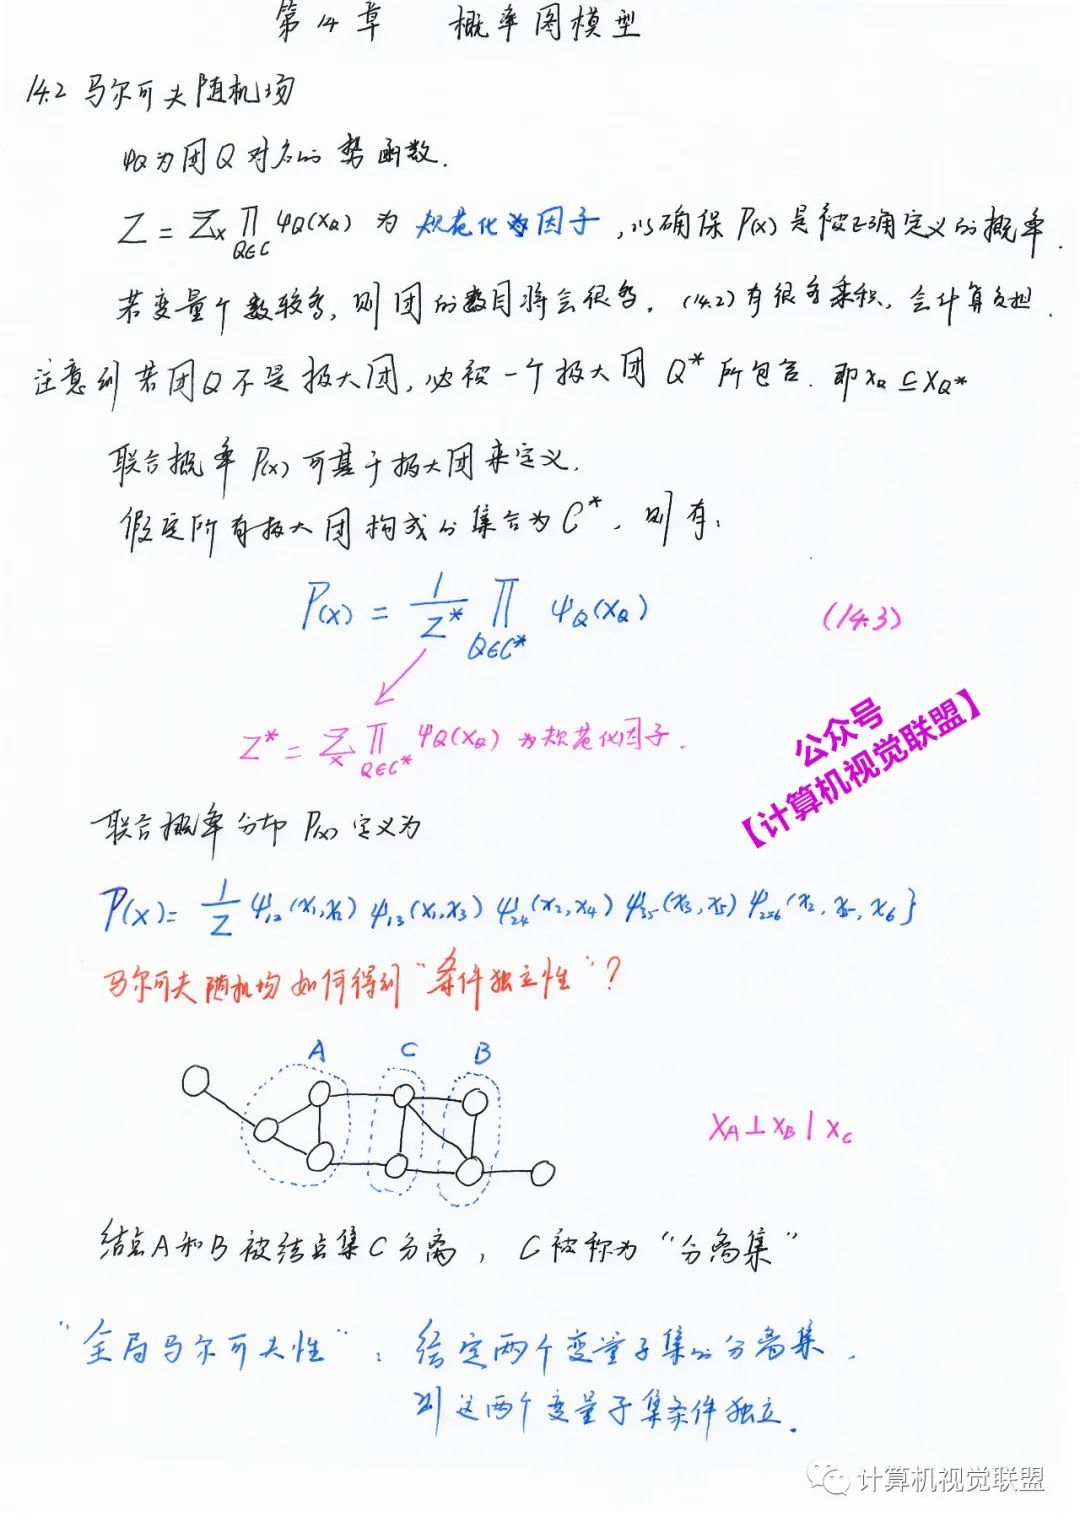 第14章 概率图模型
14.2 马尔可夫随机场
ψQ为团Q对应的势函数.
Z = Σx ∏Q∈C ψQ(xQ) 为规范化因子,以确保P(x)是被正确定义的概率.
若变量个数较多,则团的数目将会很多. (14.2)有很多乘积,会计算负担.
注意到若团Q不是极大团,必被一个极大团Q*所包含.即xQ⊆XQ*
联合概率P(x)可基于极大团来定义.
假定所有极大团构成的集合为C*,则有:
P(x) = 1/Z* ∏Q∈C* ψQ(xQ) (14.3)
Z* = Σx ∏Q∈C* ψQ(xQ) 为规范化因子.
公众号
【计算机视觉联盟】
联合概率分布P(x)定义为
P(x) = 1/Z ψ12(x1,x2) ψ13(x1,x3) ψ24(x2,x4) ψ35(x3,x5) ψ256(x2,x5,x6}
马尔可夫随机场如何得到“条件独立性”?
A C B
XA⊥XB|XC
结点A和B被结点集C分离,C被称为“分离集”
“全局马尔可夫性”:给定两个变量子集的分离集,
则这两个变量子集条件独立.
计算机视觉联盟